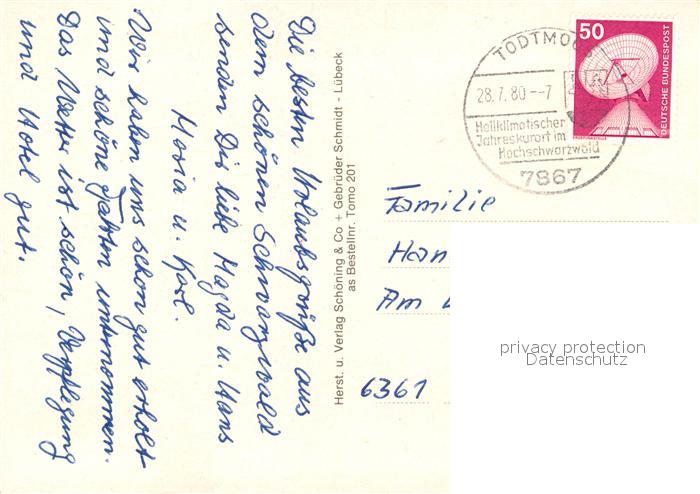 Die besten Urlaubsgrüße aus
dem schönen Schwarzwald
senden Dir liebe Magda u. Hans
Maria u. Karl.
Wir haben uns schon gut erholt
und schöne Fahrten unternommen.
Das Wetter ist schön, Verpflegung
und Hotel gut.
Herst. u. Verlag Schöning & Co + Gebrüder Schmidt - Lübeck
as Bestellnr. Tomo 201
TODTMOOS
28.7.80--7
Heilklimatischer
Jahreskurort im
Hochschwarzwald
7867
50
DEUTSCHE BUNDESPOST
Familie
Han
Am
6361
privacy protection
Datenschutz